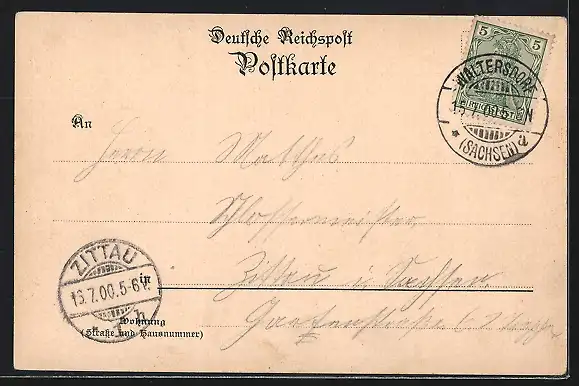 Deutsche Reichspost
Postkarte
5 5
WALTERSDORF
(SACHSEN) a
An
Herrn Matthes
Schlossermeister
ZITTAU
13.7.00.5-6N.
in Zittau i. Sachsen
Wohnung
(Straße und Hausnummer)